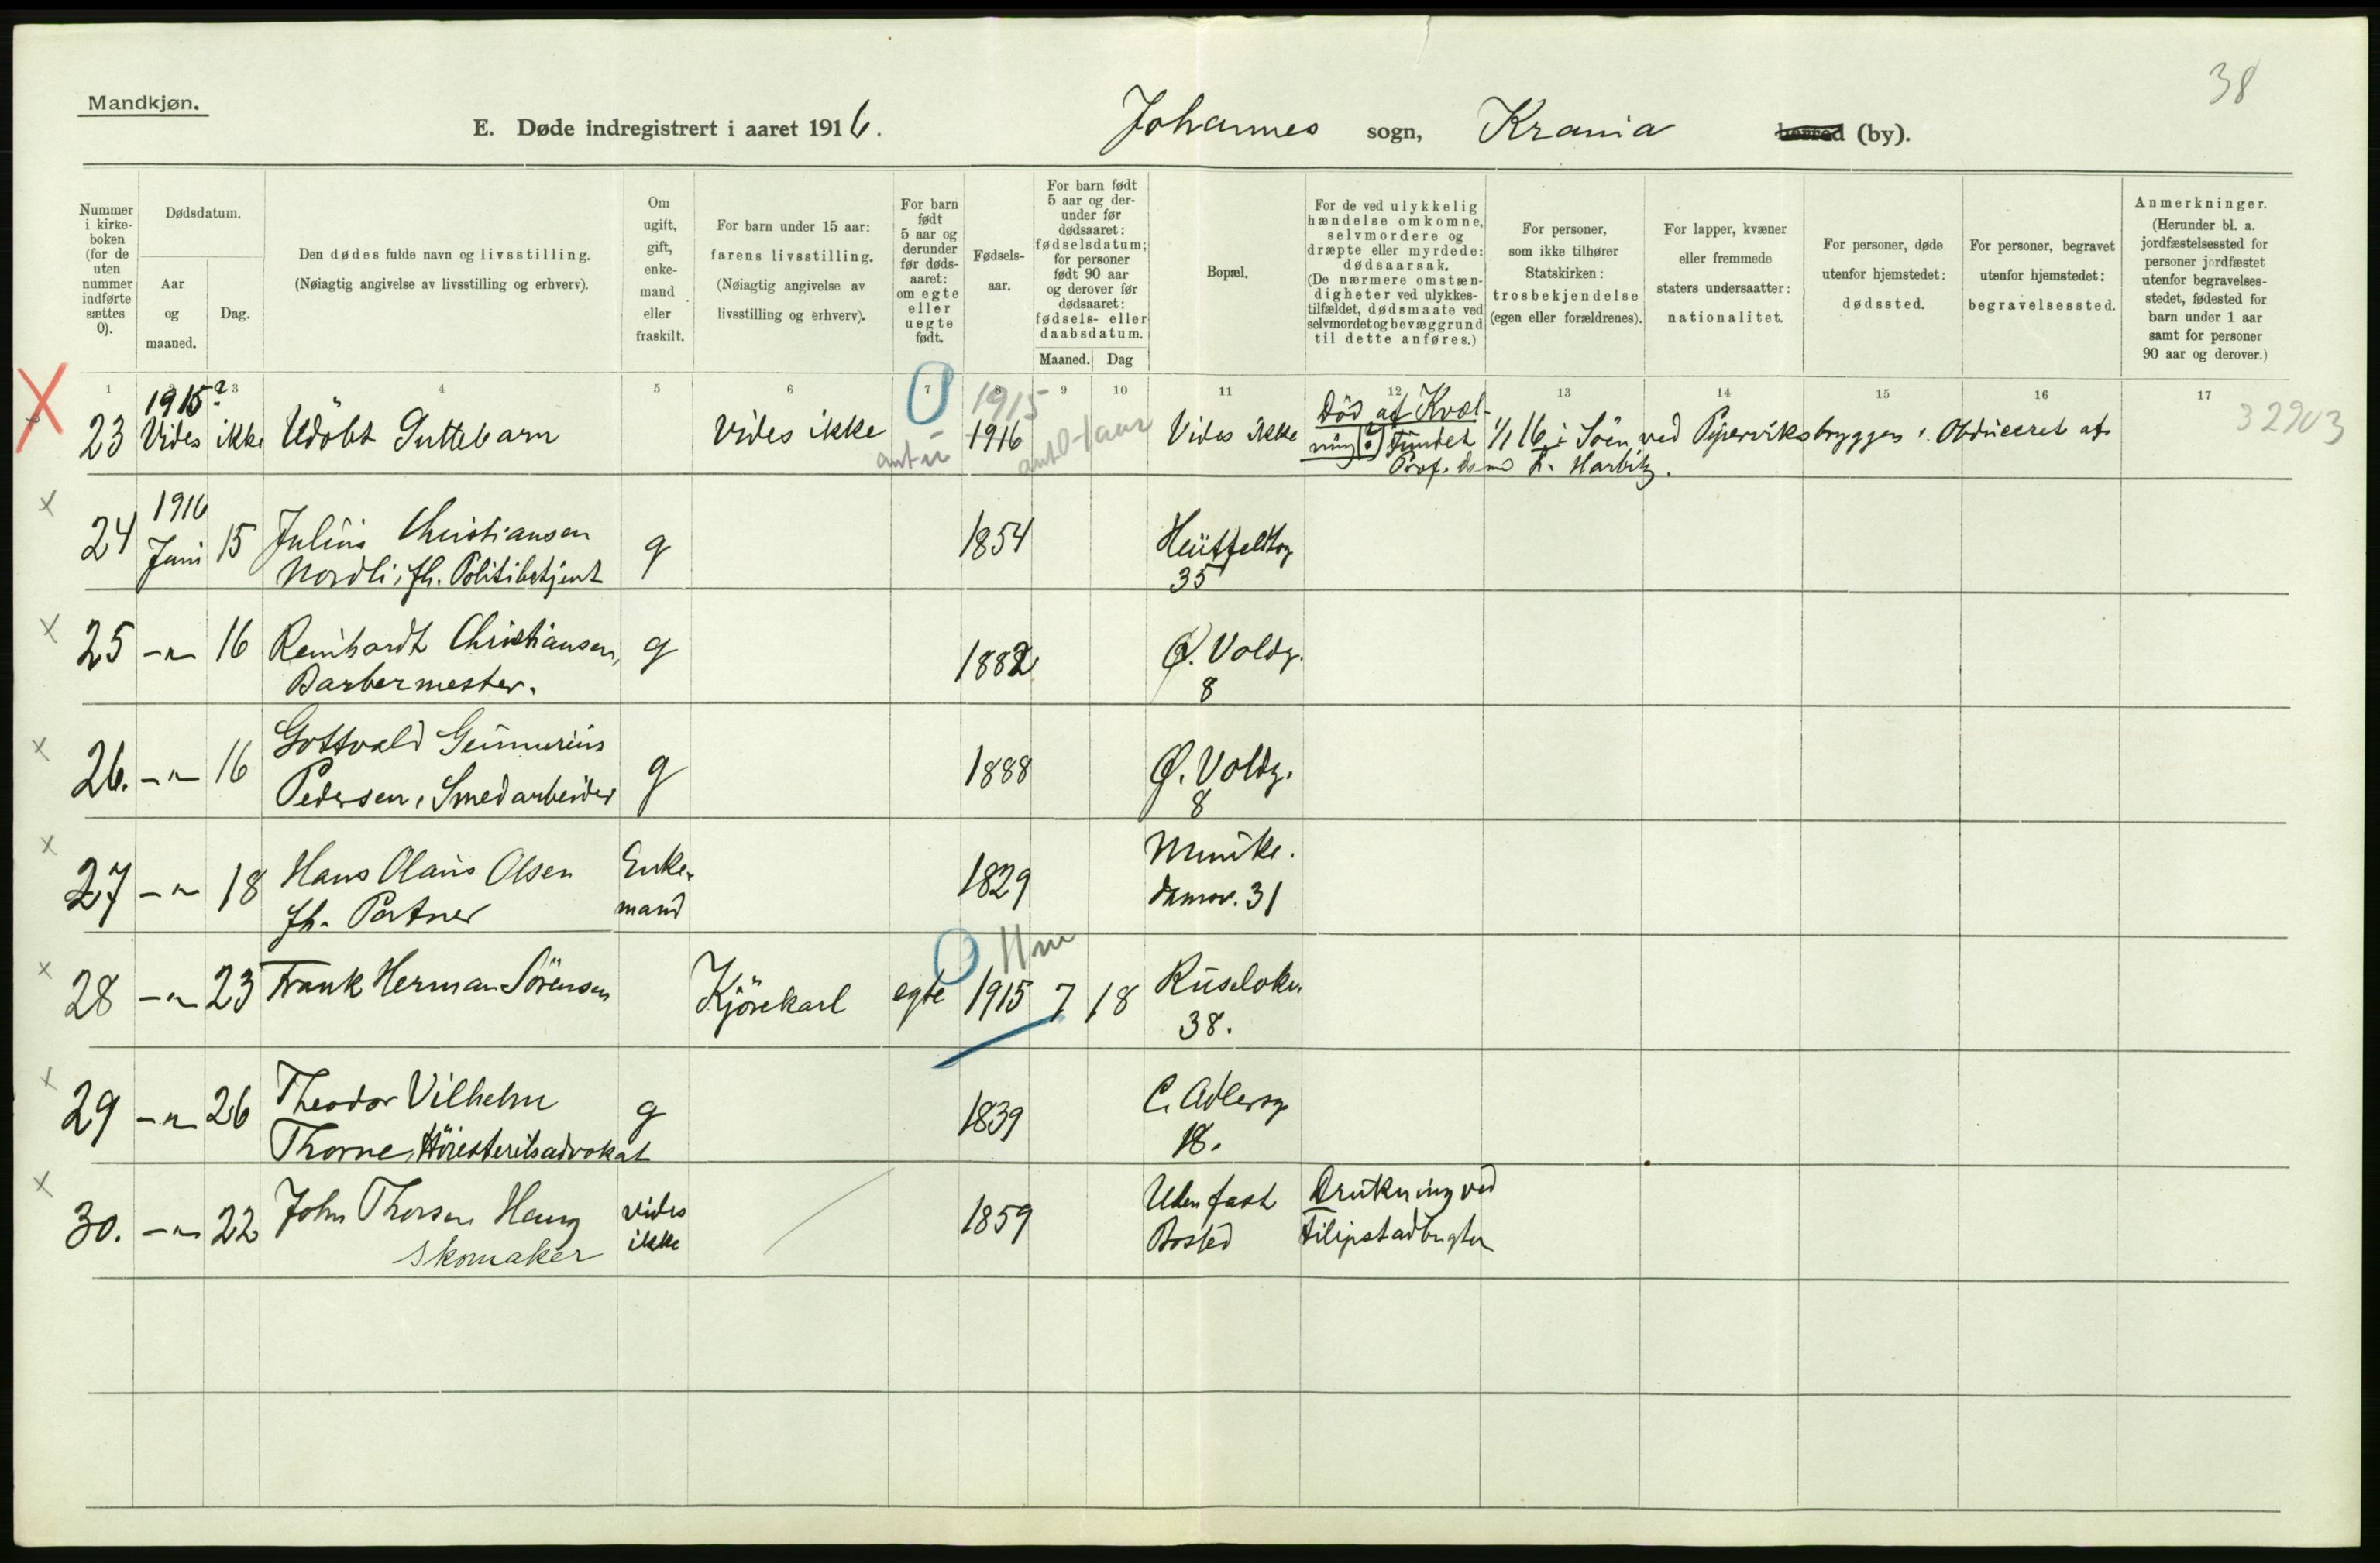 38
Mandkjøn.
E. Døde indregistrert i aaret 1916. Johannes sogn, Krania herred (by).
Nummer i kirke-boken (for de uten nummer indførte sættes 0).
Dødsdatum.
Aar og maaned.
Dag.
Den dødes fulde navn og livsstilling. (Nøiagtig angivelse av livsstilling og erhverv).
Om ugift, gift, enke-mand eller fraskilt.
For barn under 15 aar: farens livsstilling. (Nøiagtig angivelse av livsstilling og erhverv).
For barn født 5 aar og derunder før døds-aaret: om egte eller uegte født.
Fødsels-aar.
For barn født 5 aar og der-under før dødsaaret: fødselsdatum; for personer født 90 aar og derover før dødsaaret: fødsels- eller daabsdatum.
Maaned. Dag
Bopæl.
For de ved ulykkelig hændelse omkomne, selvmordere og dræpte eller myrdede: dødsaarsak. (De nærmere omstæn-digheter ved ulykkes-tilfældet, dødsmaate ved selvmordet og bevæggrund til dette anføres.)
For personer, som ikke tilhører Statskirken: trosbekjendelse (egen eller forældrenes).
For lapper, kvæner eller fremmede staters undersaatter: nationalitet.
For personer, døde utenfor hjemstedet: dødssted.
For personer, begravet utenfor hjemstedet: begravelsessted.
Anmerkninger. (Herunder bl. a. jordfæstelsessted for personer jordfæstet utenfor begravelses-stedet, fødested for barn under 1 aar samt for personer 90 aar og derover.)
1 2 3 4 5 6 7 8 9 10 11 12 13 14 15 16 17
1915? 0 1915 Död af Kvæl-
23 Vides ikke Udöbt Guttebarn Vides ikke 1916 Vides ikke ning (?) Fundet 1/1 16 i Söen ved Piperviksbryggen. Obduceret af 32903
ant u ant 0-1 aar Prof. Harbitz.
1916
24 Juni 15 Julius Christiansen g 1854 Huitfeldtsg
Nordli, fh. Politibetjent 35
25 -"- 16 Reinhardt Christiansen, g 1882 Ø. Voldg.
Barbermester. 8
26. -"- 16 Gottvald Gunnerius g 1888 Ø. Voldg.
Pedersen, Smedarbeider 8
27 -"- 18 Hans Olaus Olsen Enke- 1829 Munke.
fh. Portner mand damsv. 31
0 11 m
28 -"- 23 Frank Herman Sörensen Kjörekarl egte 1915 7 18 Ruselökv.
38.
29 -"- 26 Theodor Vilhelm g 1839 C. Adlersg
Thorne, Höiesteretsadvokat 18.
30. -"- 22 John Thorsen Haug vides 1859 Uten fast Drukning ved
Skomaker ikke Bosted Filipstadbugten